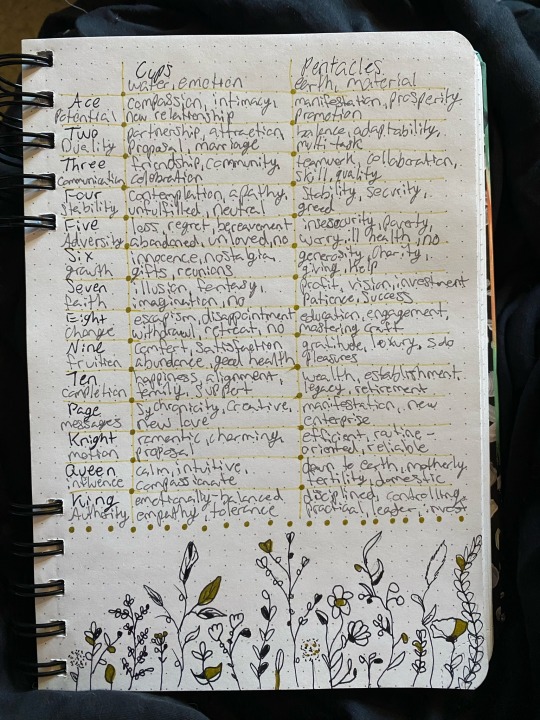 Cups Pentacles
water, emotion earth, material
Ace compassion, intimacy, manifestation, prosperity
Potential new relationship promotion
Two partnership, attraction, balance, adaptability,
Duality proposal, marriage multi task
Three friendship, community, teamwork, collaboration,
Communication celebration skill, quality
Four contemplation, apathy, Stability, security,
stability unfulfilled, neutral greed
Five loss, regret, bereavement insecurity, poverty,
Adversity abandoned, unloved, no worry, ill health, no
Six innocence, nostalgia, generosity, charity,
growth gifts, reunions giving, help
Seven illusion, fantasy, profit, vision, investment
faith imagination, no Patience, success
Eight escapism, disappointment education, engagement,
change withdrawl, retreat, no mastering craft
Nine comfort, satisfaction gratitude, luxury, solo
fruition abundance, good health pleasures
Ten happiness, alignment, wealth, establishment.
completion family, support legacy, retirement
Page sychronicity, creative, manifestation, new
messages new love enterprise
Knight romantic, charming, efficient, routine-
motion proposal oriented, reliable
Queen calm, intuitive, down to earth, motherly,
influence compassionate fertility, domestic
King emotionally-balanced disciplined, controlling,
Authority empathy, tolerance practical, leader, invest